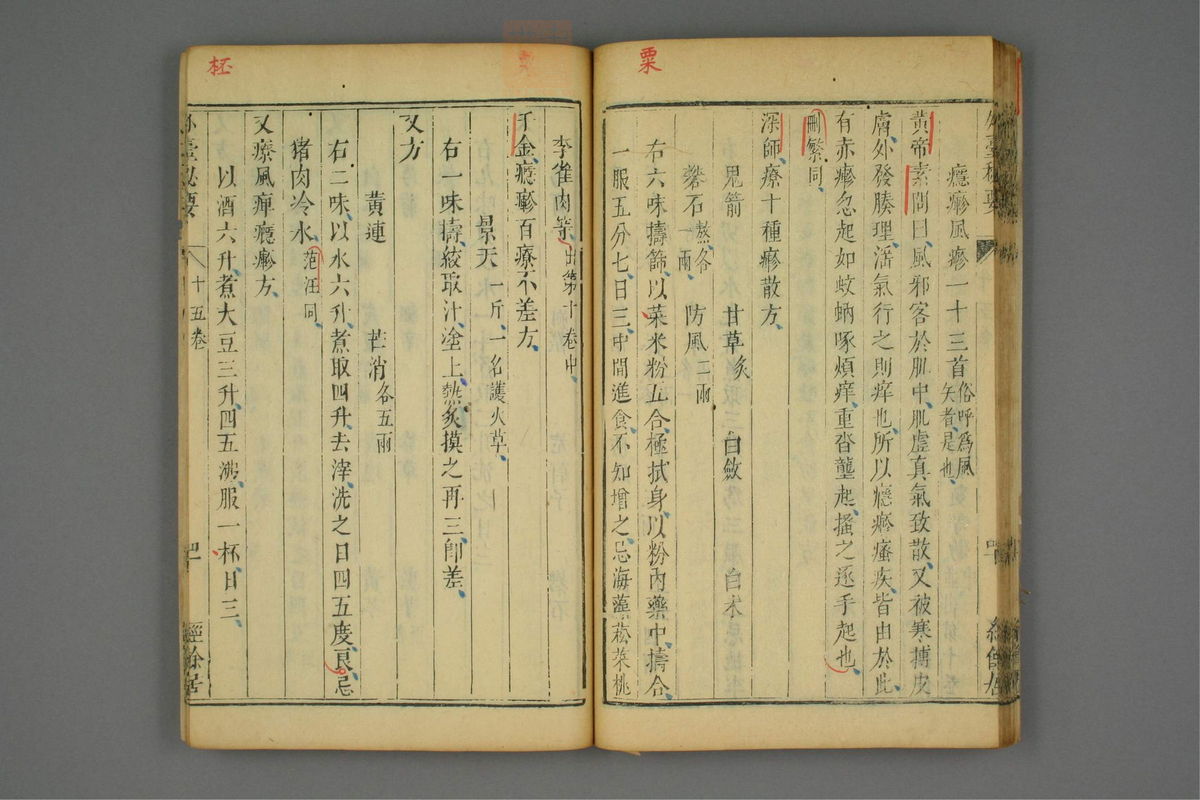 粟
癮瘮風瘮一十三首俗呼爲風矢者是也
黃帝素問曰風邪客於肌中肌虛真氣致散又被寒搏皮
膚外發腠理淫氣行之則痒也所以癮瘮瘙疾皆由於此
有赤瘮忽起如蚊蚋啄煩痒重沓壟起搔之逐手起也
刪繁同
深師療十種瘮散方
鬼箭 甘草炙 白斂 白术
礬石熬各一兩 防風二兩
右六味擣篩以菜米粉五合極拭身以粉內藥中擣合
一服五分七日三中間進食不知增之忌海藻菘菜桃
李雀肉等出第十卷中
千金癮瘮百療不差方
景天一斤一名護火草
右一味擣絞取汁塗上熱炙摸之再三卽差
又方
黃連 芒消各五兩
右二味以水六升煮取四升去滓洗之日四五度良忌
猪肉冷水范汪同
又療風痺癮瘮方
以酒六升煮大豆三升四五沸服一杯日三
外臺秘要 十五卷 經餘居
柸